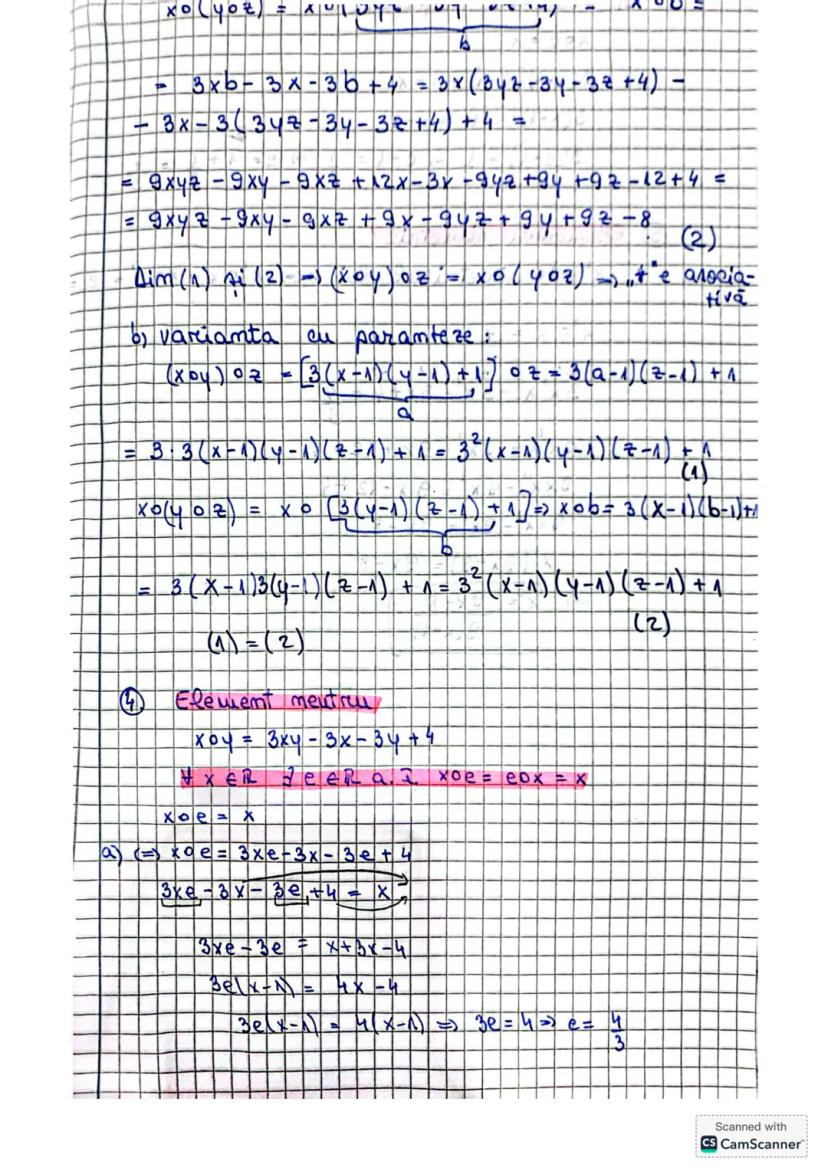 xo(yoz) =
b
= 3xb - 3x - 3b + 4 = 3x(3yz - 3y - 3z + 4) -
- 3x - 3(3yz - 3y - 3z + 4) + 4 =
= 9xyz - 9xy - 9xz + 12x - 3x - 9yz + 9y + 9z - 12 + 4 =
= 9xyz - 9xy - 9xz + 9x - 9yz + 9y + 9z - 8
(2)
Dim (1) și (2) => (xoy)oz = xo(yoz) => „+" e asocia-
tivă
b) varianta cu paranteze:
(xoy)oz = [3(x-1)(y-1)+1] oz = 3(a-1)(z-1) + 1
a
= 3·3(x-1)(y-1)(z-1) + 1 = 3²(x-1)(y-1)(z-1) + 1
(1)
xo(yoz) = xo [3(y-1)(z-1)+1] => xob = 3(x-1)(b-1)+1
b
= 3(x-1)3(y-1)(z-1) + 1 = 3²(x-1)(y-1)(z-1) + 1
(2)
(1) = (2)
④ Element neutru
xoy = 3xy - 3x - 3y + 4
∀ x ∈ R ∃ e ∈ R a.î. xoe = eox = x
xoe = x
a) (=) xoe = 3xe - 3x - 3e + 4
3xe - 3x - 3e + 4 = x
3xe - 3e = x + 3x - 4
3e(x-1) = 4x - 4
3e(x-1) = 4(x-1) => 3e = 4 => e = 4/3
Scanned with
CS CamScanner